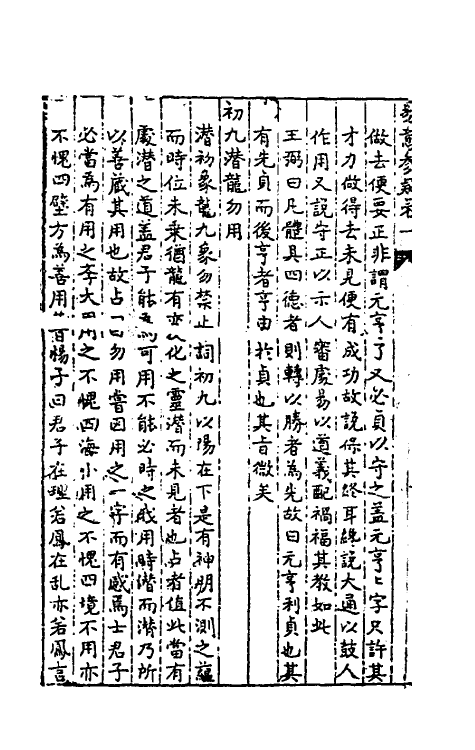 易意參疑卷一
做去便要正非謂元亨了又必貞以守之盖元亨亨字只許其
才力做得去未見便有成功故說保其終耳蓋說大通以鼓人
作用又說守正以示人審處易以道義配禍福其教如此
王弼曰凡體具四德者則轉以勝者為先故曰元亨利貞也其
有先貞而後亨者亨由於貞也其旨微矣
初九潛龍勿用
潛初象龍九象勿禁止詞初九以陽在下是有神明不測之蘊
而時位未乘猶龍有變化之靈潛而未見者也占者值此當有
處潛之道盖君子能為可用不能必時之我用時潛而潛乃所
以善藏其用也故占曰勿用嘗因用之一字而有感焉士君子
必當為有用之学大用之不愧四海小用之不愧四境不用亦
不愧四壁方為善用昔楊子曰君子在理若鳳在乱亦若鳳言